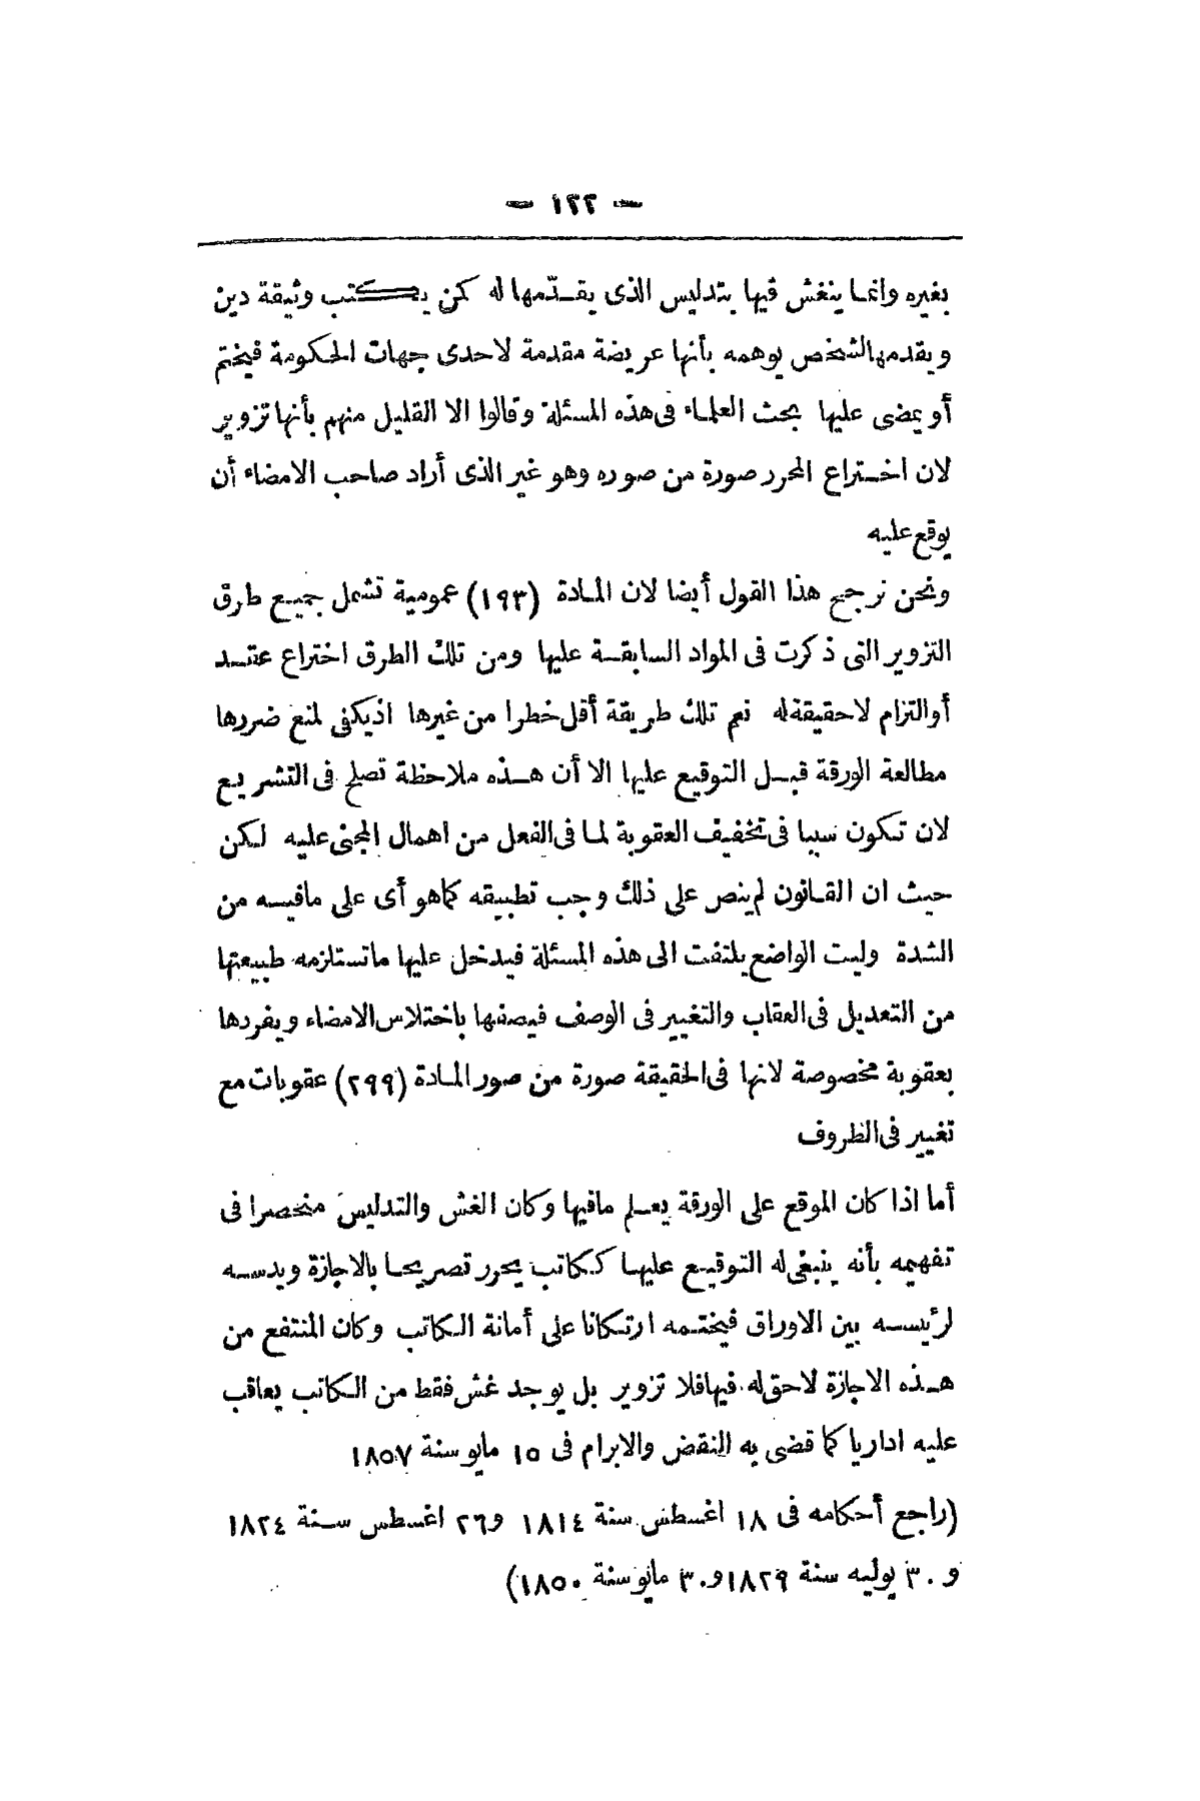 — ١٢٢ —
بغيره وانما ينغش فيها بتدليس الذى يقدّمها له كمن يكتب وثيقة دين
ويقدمها لشخص يوهمه بأنها عريضة مقدمة لاحدى جهات الحكومة فيختم
أو يمضى عليها بحث العلماء فى هذه المسئلة وقالوا الا القليل منهم بأنها تزوير
لان اختراع المحرر صورة من صوره وهو غير الذى أراد صاحب الامضاء أن
يوقع عليه
ونحن نرجح هذا القول أيضا لان المادة (١٩٣) عمومية تشمل جميع طرق
التزوير التى ذكرت فى المواد السابقة عليها ومن تلك الطرق اختراع عقد
أو التزام لا حقيقة له نعم تلك طريقة أقل خطرا من غيرها اذ يكفى لمنع ضررها
مطالعة الورقة قبل التوقيع عليها الا أن هذه ملاحظة تصلح فى التشريع
لان تكون سببا فى تخفيف العقوبة لما فى الفعل من اهمال المجنى عليه لكن
حيث ان القانون لم ينص على ذلك وجب تطبيقه كما هو أى على مافيه من
الشدة وليت الواضع يلتفت الى هذه المسئلة فيدخل عليها ماتستلزمه طبيعتها
من التعديل فى العقاب والتغيير فى الوصف فيصفها باختلاس الامضاء ويفردها
بعقوبة مخصوصة لانها فى الحقيقة صورة من صور المادة (٢٩٩) عقوبات مع
تغيير فى الظروف
أما اذا كان الموقع على الورقة يعلم مافيها وكان الغش والتدليس منحصرا فى
تفهيمه بأنه ينبغى له التوقيع عليها ككاتب يحرر تصريحا بالاجازة ويدسه
لرئيسه بين الاوراق فيختمه ارتكانا على أمانة الكاتب وكان المنتفع من
هذه الاجازة لاحق له فيها فلا تزوير بل يوجد غش فقط من الكاتب يعاقب
عليه اداريا كما قضى به النقض والابرام فى ١٥ مايو سنة ١٨٥٧
(راجع أحكامه فى ١٨ اغسطس سنة ١٨١٤ و٢٦ اغسطس سنة ١٨٢٤
و ٣٠ يوليه سنة ١٨٢٩ و٣٠ مايو سنة ١٨٥٠)